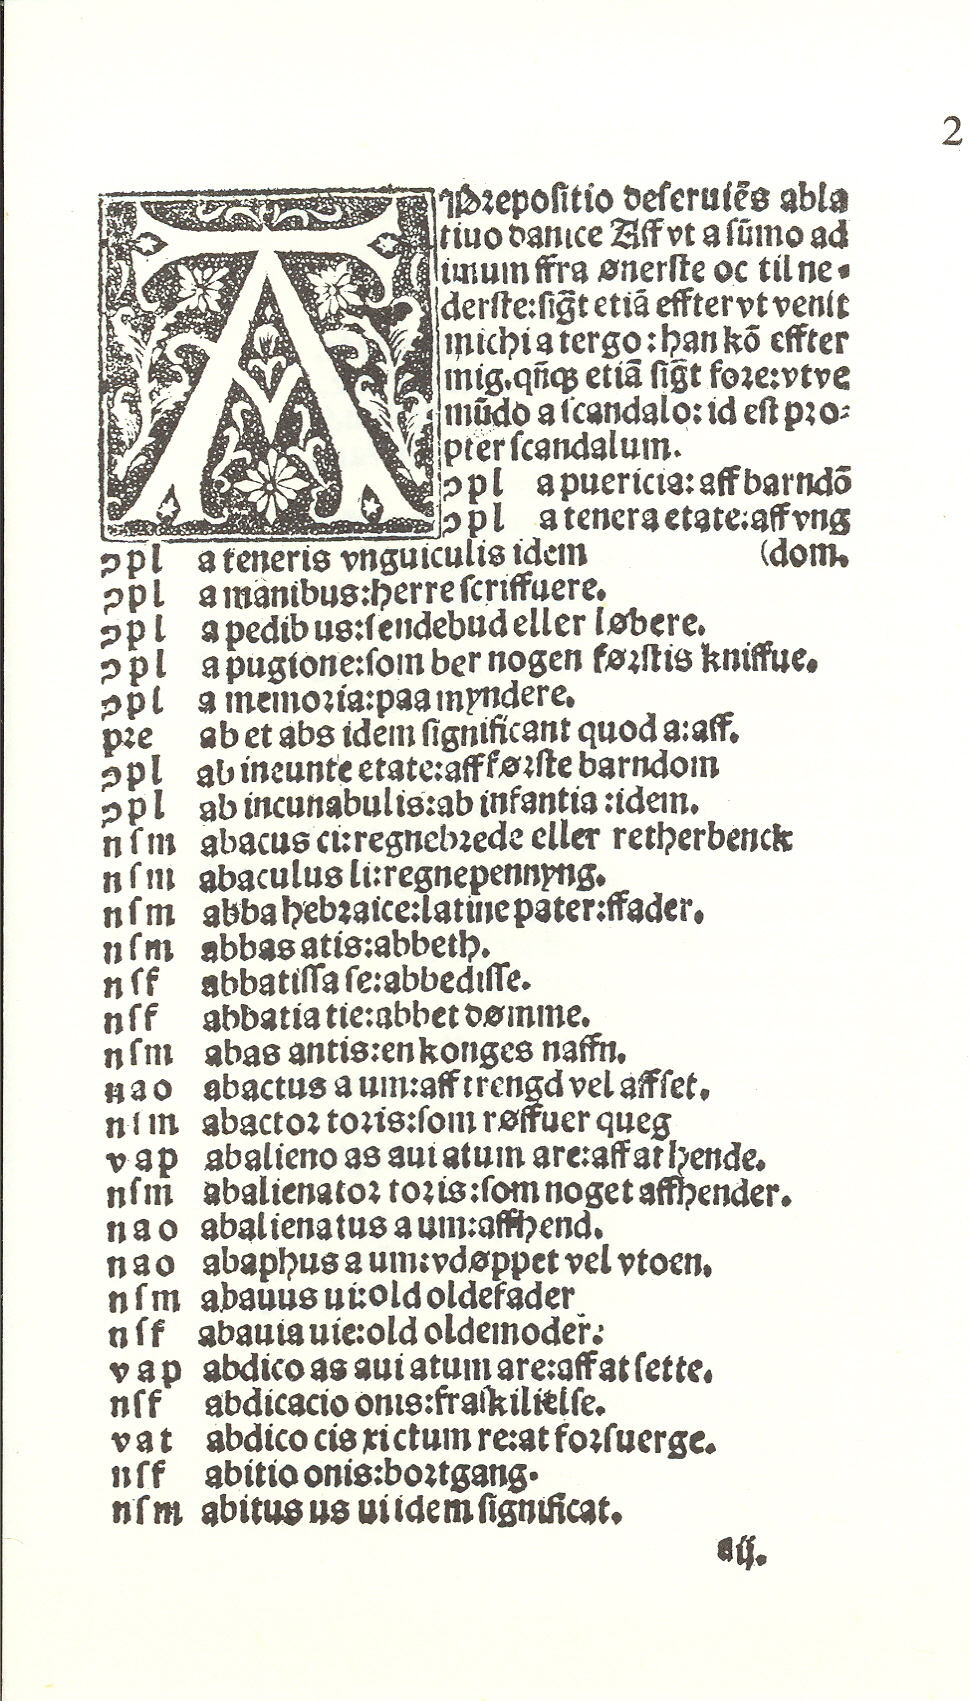 2
A Prepositio deseruiēs abla
tiuo danice Aff vt a sūmo ad
imum ffra ønerste oc til ne⸗
derste: sigt̄ etiā effter vt venit
michi a tergo: han kō effter
mig. qn̄qꝫ etiā sigt̄ fore: vt ve
mūdo a scandalo: id est pro⸗
pter scandalum.
ↄpl a puericia: aff barndō
ↄpl a tenera etate: aff vng
ↄpl a teneris vnguiculis idem (dom.
ↄpl a manibus: herre scriffuere.
ↄpl a pedibus: sendebud eller løbere.
ↄpl a pugione: som ber nogen førstis kniffue.
ↄpl a memoria: paamyndere.
pre ab et abs idem significant quod a: aff.
ↄpl ab ineunte etate: aff første barndom
ↄpl ab incunabulis: ab infantia: idem.
nſm abacus ci: regnebrede eller retherbenck
nſm abaculus li: regnepennyng.
nſm abba hebraice: latine pater: ffader.
nſm abbas atis: abbeth.
nſf abbatissa se: abbedisse.
nſf abbatia tie: abbet dømme.
nſm abas antis: en konges naffn.
nao abactus a um: aff trengd vel affset.
nſm abactor toris: som røffuer queg
vap abalieno as aui atum are: aff at hende.
nſm abalienator toris: som noget affhender.
nao abalienatus a um: affhend.
nao abaphus a um: vdøppet vel vtoen.
nſm abauus ui: old oldefader
nſf abauia uie: old oldemoder:
vap abdico as aui atum are: aff at sette.
nſf abdicacio onis: fraskilielse.
vat abdico cis xi ctum re: at forsuerge.
nſf abitio onis: bortgang.
nſm abitus us ui idem significat.
aij.